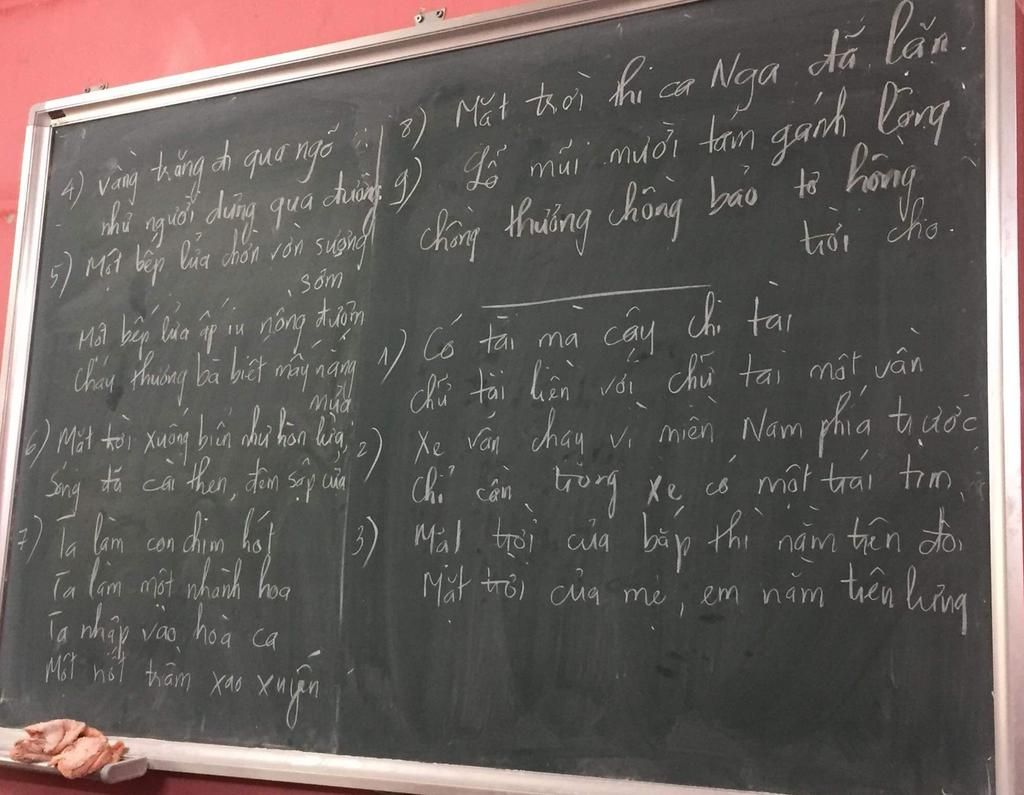 4) vầng trăng đi qua ngõ
như người dưng qua đường
5) Một bếp lửa chờn vờn sương
sớm
Một bếp lửa ấp iu nồng đượm
Cháu thương bà biết mấy nắng
mưa
6) Mặt trời xuống biển như hòn lửa
Sóng đã cài then, đêm sập cửa
7) Ta làm con chim hót
Ta làm một nhành hoa
Ta nhập vào hoà ca
Một nốt trầm xao xuyến
8) Mặt trời thi ca Nga đã lặn.
9) Lỗ mũi mười tám gánh lông
chồng thương chồng bảo tơ hồng
trời cho.
1) Có tài mà cậy chi tài
chữ tài liền với chữ tai một vần
2) Xe vẫn chạy vì miền Nam phía trước
chỉ cần trong xe có một trái tim
3) Mặt trời của bắp thì nằm trên đồi
Mặt trời của mẹ, em nằm trên lưng